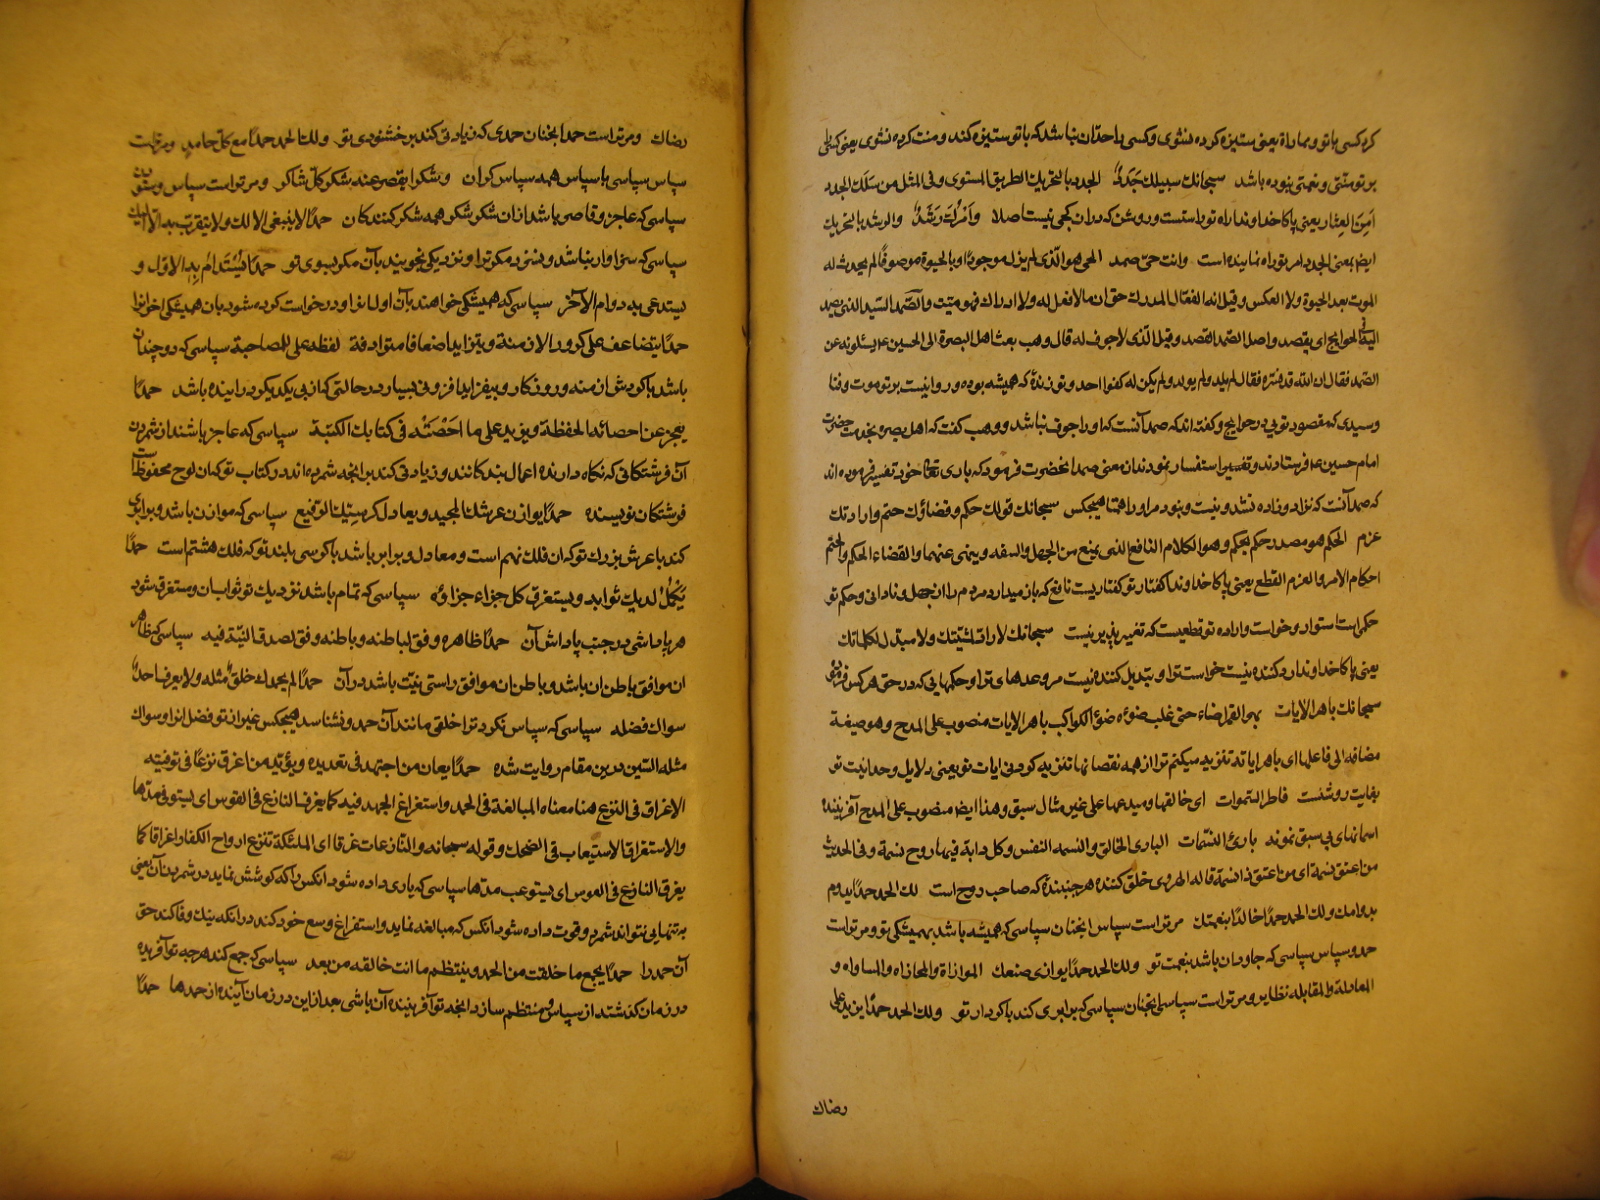 کره کسی با تو و مماراة یعنی ستیزه کرده نشوی و کسی را حد آن نباشد که با تو ستیزه کند و منت کرده نشوی یعنی کسی را
بر تو منتی و نعمتی نبوده باشد سبحانک سبیلک جَدَدٌ الجدد بالتحریک الطریق المستوی و فی المثل من سَلَکَ الجدد
اَمِنَ العِثار یعنی پاکا خداوندا راه تو راستست و روشن که در آن کجی نیست اصلا وَاَمْرُکَ رَشَدٌ و الرشد بالتحریک
ایضا بمعنی الجدد امر تو راه نماینده است وانت حیّ صمد الحی هو الّذی لم یزل موجودًا و بالحیوة موصوفًا لم یحدث له
الموت بعد الحیوة ولا العکس و قیل انه الفعّال المدرک حتی ان مالافعل له ولا ادراک فهو میّت والصّمد السّید الذی یصمد
الیه فی الحوایج ای یقصد و اصل الصّمد القصد و قیل الّذی لاجوف له قال وهب بعث اهل البصرة الی الحسین ع یسئلونه عن
الصّمد فقال ان الله قد فسّره فقال لم یلد و لم یولد و لم یکن له کفوا احد و تو زندهٔ که همیشه بوده و روا نیست بر تو موت و فنا
و سیدی که مقصود تویی در حوایج و گفته اند که صمد آنست که او را جوف نباشد و وهب گفت که اهل بصره بخدمت حضرت
امام حسین ع فرستادند و تفسیر استفسار نمودند از معنی صمد آنحضرت فرمود که باری تعالی خود تفسیر فرموده اند
که صمد آنست که نزاد و زاده نشد و نیست و نبود مر او را همتا هیچکس سبحانک قولک حکم و قضاؤک حتم و ارادتک
عزم الحکم هو مصدر حکم یحکم و هو الکلام النافع الذی یمنع من الجهل و السفه و ینهی عنهما و القضاء الحکم و الحتم
احکام الامر و العزم القطع یعنی پاکا خداوندا گفتار تو گفتاریست نافع که باز میدارد مردم را از جهل و نادانی و حکم تو
حکم است استوار و خواست و اراده تو قطعیست که تغییر پذیر نیست سبحانک لا رادّ لمشیّتک ولا مبدّل لکلماتک
یعنی پاکا خداوندا رد کننده نیست خواست ترا و تبدیل کننده نیست مر وعدهای ترا و حکمهایی که در حق هر کس فرمودهٔ
سبحانک باهر الایات بهر القمر اضاء حتی غلب ضوءه ضوء الکواکب باهر الایات منصوب علی المدح و هو صیغة
مضافه الی فاعلها ای باهر ایاته تنزیه میکنم ترا از همه نقصانها تنزیه کردنی ایات تو یعنی دلایل وحدانیت تو
بغایت روشنست فاطر السّموات ای خالقها و مبدعها علی غیر مثال سبق و هذا ایضا منصوب علی المدح آفرینندهٔ
اسمانهای بی سبق نمونه بارئ النّسمات الباری الخالق و النسمه النفس و کل دابة فیها روح نسمة و فی الحدیث
من اعتق نسمة ای من اعتق ذا نسمة قاله الهروی خلق کننده هر جنبندهٔ که صاحب روح است لک الحمد حمدًا یدوم
بدوامک ولک الحمد حمدًا خالدًا بنعمتک مر تراست سپاس انچنان سپاسی که همیشه باشد بهمیشگی تو و مر تراست
حمد و سپاس سپاسی که جاودان باشد بنعمت تو ولک الحمد حمدًا یوازی صنعک الموازاة و المحاذاة و المساواه و
المعادلة و المقابله نظایر و مر تراست سپاس انچنان سپاسی که برابری کند با کردار تو ولک الحمد حمدًا یزید علی
رضاک
رضاک و مر تراست حمد انچنان حمدی که زیادتی کند بر خشنودی تو ولک الحمد حمدًا مع کلّ حامدٍ و مر تراست
سپاس سپاسی با سپاس همه سپاس کران و شکرا یقصر عنه شکر کلّ شاکر و مر تراست سپاس و ستودن
سپاسی که عاجز و قاصر باشد از آن شکر شکر همه شکر کنندکان حمدًا لا ینبغی الا لک ولا یتقرب به الا الیک
سپاسی که سزاوار نباشد و نسزد مکر ترا و نزدیکی نجویند بآن مکر بسوی تو حمدًا یُسْتَدامُ بِهِ الاوّل و
یستدعی به دوام الآخر سپاسی که همیشگی خواهند بآن اول انرا و درخواست کرده شود بان همیشگی اخر انرا
حمدًا یتضاعف علی کرور الازمنة و یتزاید اضعافا مترادفة لفظه علی للمصاحبة سپاسی که دوچندان
باشد با کردش ازمنه و روزکار و بیفزاید افزونی بسیار در حالتی که از پی یکدیکر در اینده باشد حمدًا
یعجز عن احصائه الحفظة و یزید علی ما احْصَتْه فی کتابک الکتبة سپاسی که عاجز باشند از شمردن
آن فرشتکانی که نکاه دارنده اعمال بندکانند و زیادتی کند بر انچه شمرده اند در کتاب تو که ان لوح محفوظ است
فرشتکان نویسنده حمدًا یوازن عرشک المجید و یعادل کرسیّک الرّفیع سپاسی که موازن باشد و برابری
کند با عرش بزرک تو که ان فلک نهم است و معادل و برابر باشد با کرسی بلند تو که فلک هشتم است حمدًا
یَکْمُلُ لدیک ثوابه و یستغرق کل جزاء جزاؤه سپاسی که تمام باشد نزدیک تو ثواب ان و مستغرق شود
هر پاداشی در جنب پاداش آن حمدًا ظاهره وفق لباطنه و باطنه وفق لصدق النیّة فیه سپاسی که ظاهر
ان موافق باطن ان باشد و باطن ان موافق راستی نیّت باشد در آن حمدًا لم یحمدک خلقٌ مثله ولا یعرف احدٌ
سواک فضله سپاسی که سپاس نکرد ترا خلقی مانند آن حمد و نشناسد هیچکس غیر از تو فضل انرا و سواک
مثله السّین درین مقام روایت شده حمدًا یعان من اجتهد فی تعدیده و یؤیّد من اغرق نزعًا فی توفیته
الاغراق فی النزع هنا معناه المبالغة فی الحمد و استفراغ الجهد فیه کما یغرف النازع فی القوس ای یستوفی مدّها
و الاستغراق الاستیعاب فی الضحک و قوله سبحانه و النّازعات غرقا ای الملئکة تنزع ارواح الکفار اغراقا کما
یغرق النازع فی القوس ای یستوعب مدّها سپاسی که یاری داده شود انکس را که کوشش نماید در شمردن آن یعنی
بتنهایی نتواند شمرد و قوت داده شود انکس که مبالغه نماید و استفراغ وسع خود کند در انکه نیک وفا کند حق
آن حمد را حمدًا یجمع ما خلقت من الحمد و ینتظم ما انت خالقه من بعد سپاسی که جمع کند هر چه تو آفریده
در زمان کذشته از سپاس و منتظم سازد انچه تو آفریننده آن باشی بعد از این در زمان آینده از حمدها حمدًا